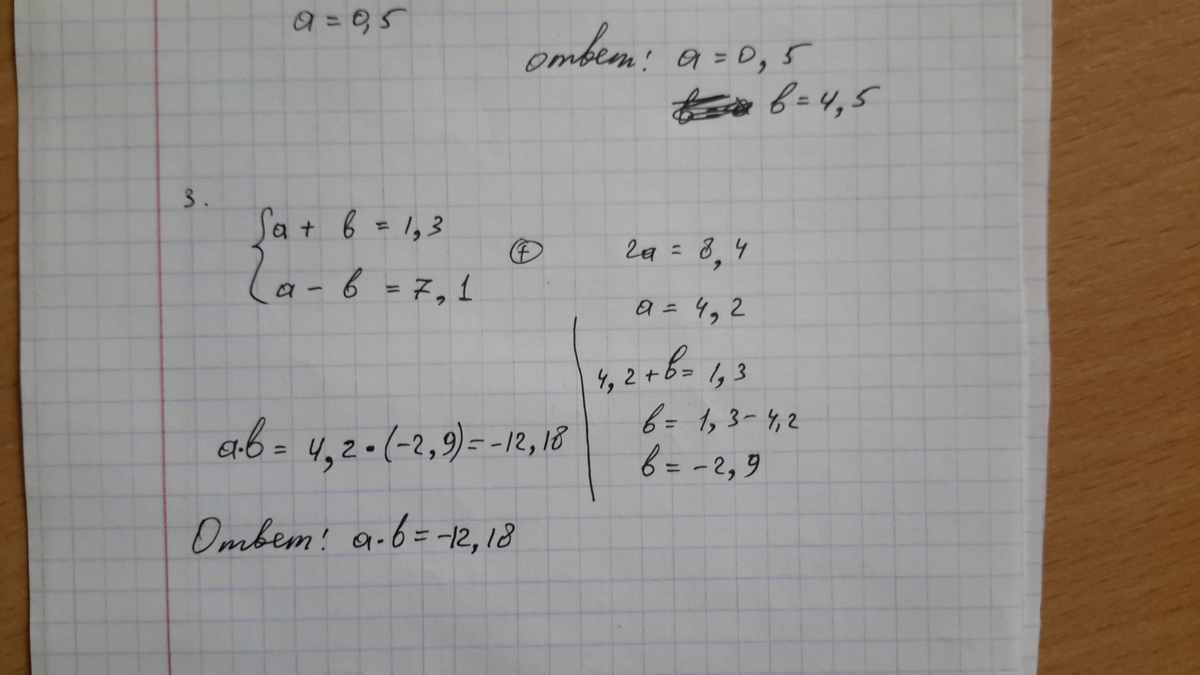 a = 0,5
ответ: a = 0,5
b = 4,5
3.
a + b = 1,3
a - b = 7,1
+
2a = 8,4
a = 4,2
4,2 + b = 1,3
b = 1,3 - 4,2
b = -2,9
a·b = 4,2·(-2,9) = -12,18
Ответ: a·b = -12,18